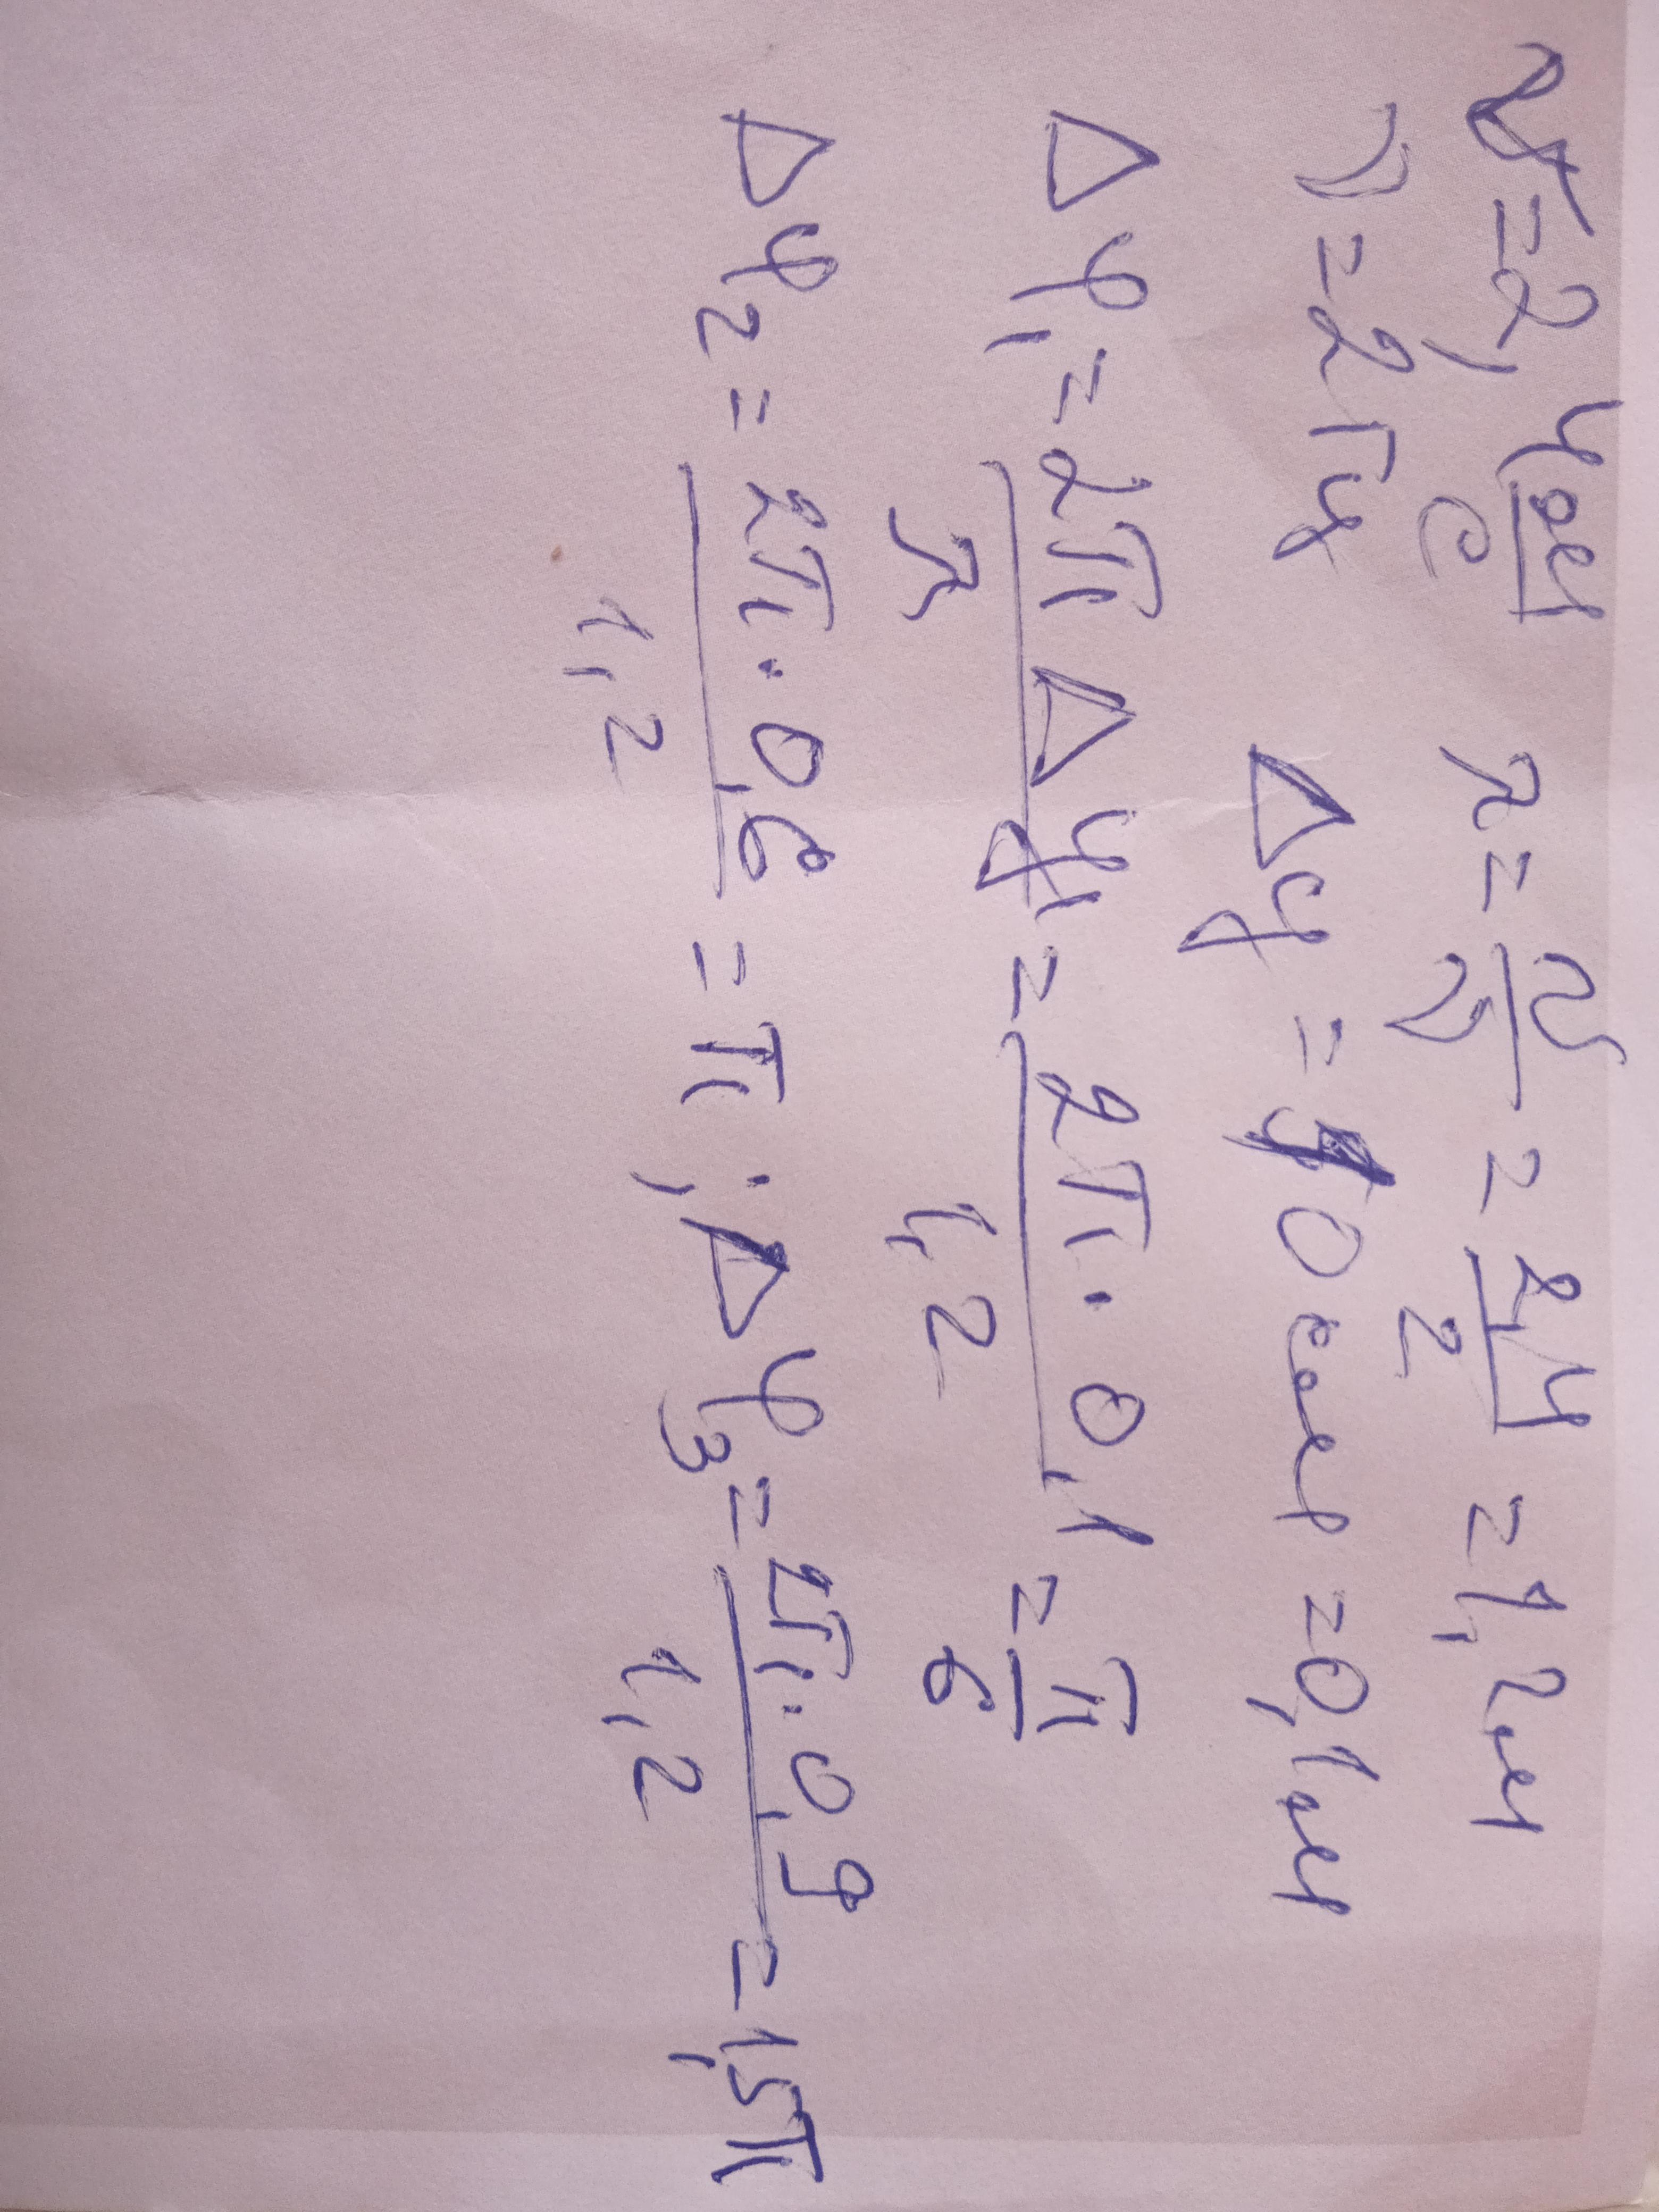 v = 2,4 м/с λ = v/ν = 2,4/2 = 1,2 м
ν = 2 Гц Δy = 10 см = 0,1 м
Δφ₁ = 2π Δy₁/λ = 2π · 0,1/1,2 = π/6
Δφ₂ = 2π · 0,6/1,2 = π ; Δφ₃ = 2π · 0,9/1,2 = 1,5π